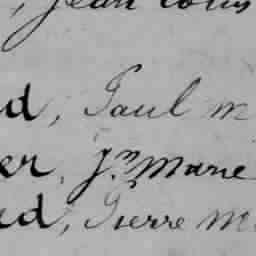 , Jean Louis
d, Paul m
er, Jn Marie
ed, Pierre M